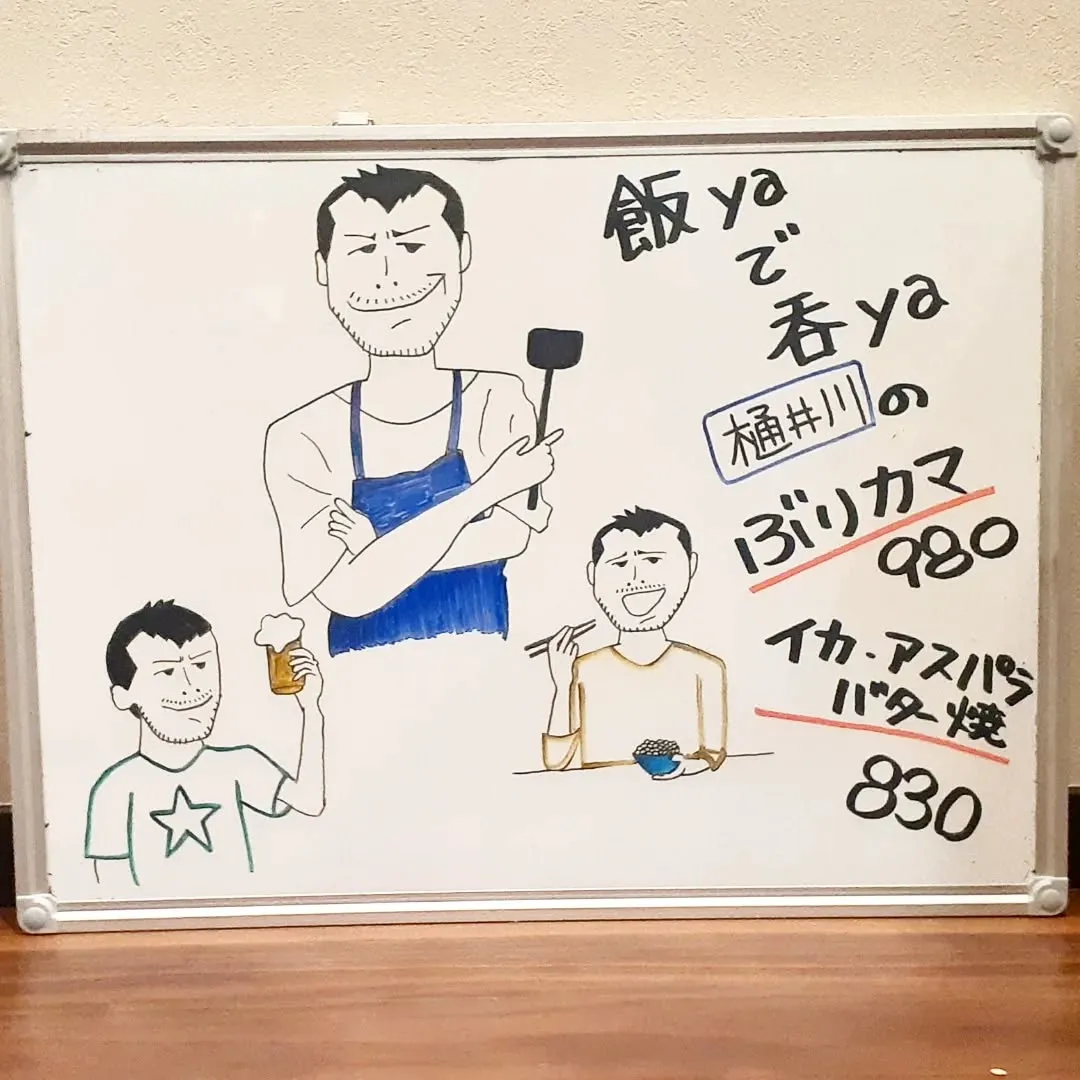 飯ya
で
呑ya
樋井川の
ぶりカマ
980
イカ・アスパラ
バター焼
830